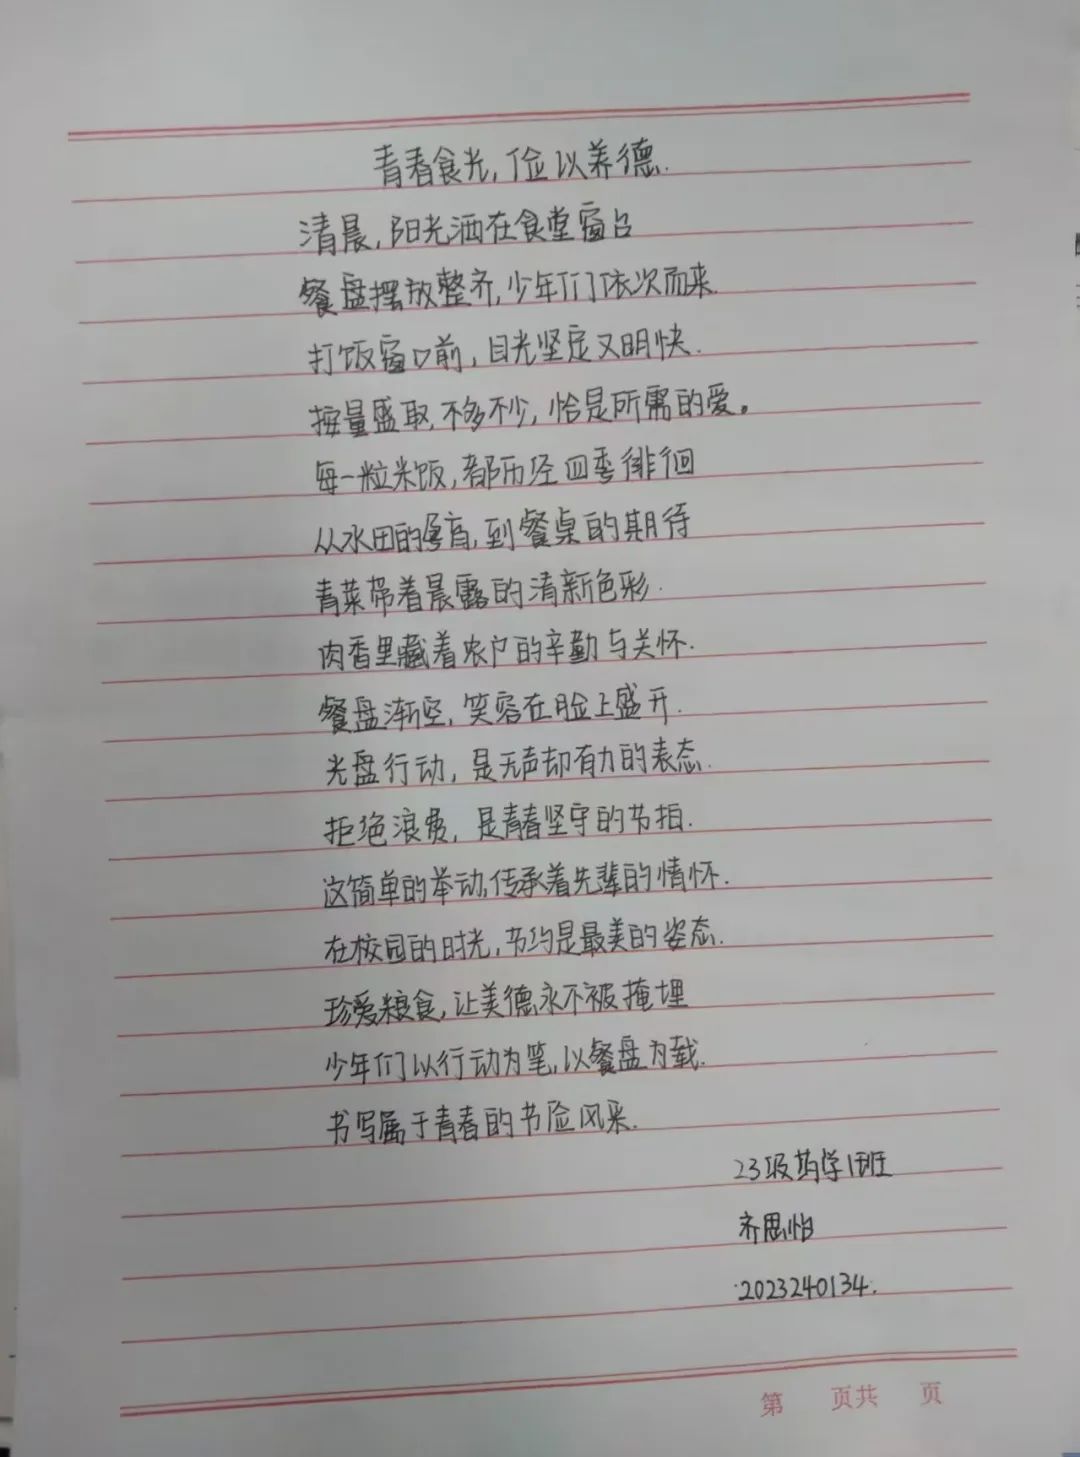 青春食光,俭以养德.
清晨,阳光洒在食堂窗台
餐盘摆放整齐,少年们依次而来.
打饭窗口前,目光坚定又明快.
按量盛取,不多不少,恰是所需的爱。
每一粒米饭,都历经四季徘徊
从水田的孕育,到餐桌的期待
青菜带着晨露的清新色彩.
肉香里藏着农户的辛勤与关怀.
餐盘渐空,笑容在脸上盛开.
光盘行动,是无声却有力的表态.
拒绝浪费,是青春坚守的节拍.
这简单的举动,传承着先辈的情怀.
在校园的时光,节约是最美的姿态.
珍爱粮食,让美德永不被掩埋
少年们以行动为笔,以餐盘为载.
书写属于青春的节俭风采.
23级药学1班
齐思怡
2023240134.
第 页共 页